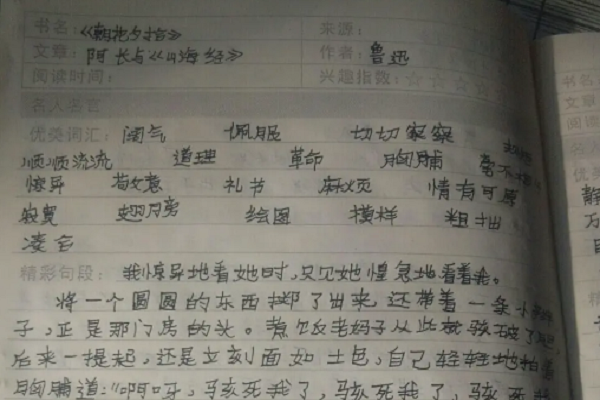 书名:《朝花夕拾》 来源:
文章:阿长与《山海经》 作者:鲁迅
阅读时间: 兴趣指数:☆☆☆☆☆
名人签言
优美词汇: 阔气 佩服 切切察察
顺顺流流 道理 革命 胸脯
惊异 故意 礼节 麻烦 情有可原
寂寞 翅膀 绘图 模样 粗拙
凑合
精彩句段: 我惊异地看她时,只见她惶急地看着我。
将一个圆圆的东西掷了出来,还带着一条小
子,正是那门房的头。煮饭老妈子从此就骇破了
后来一提起,还是立刻面如土色,自己轻轻地拍着
胸脯道:"啊呀,骇死我了,骇死我了,骇死我
书名
文章
阅读
名人
优美
静
万